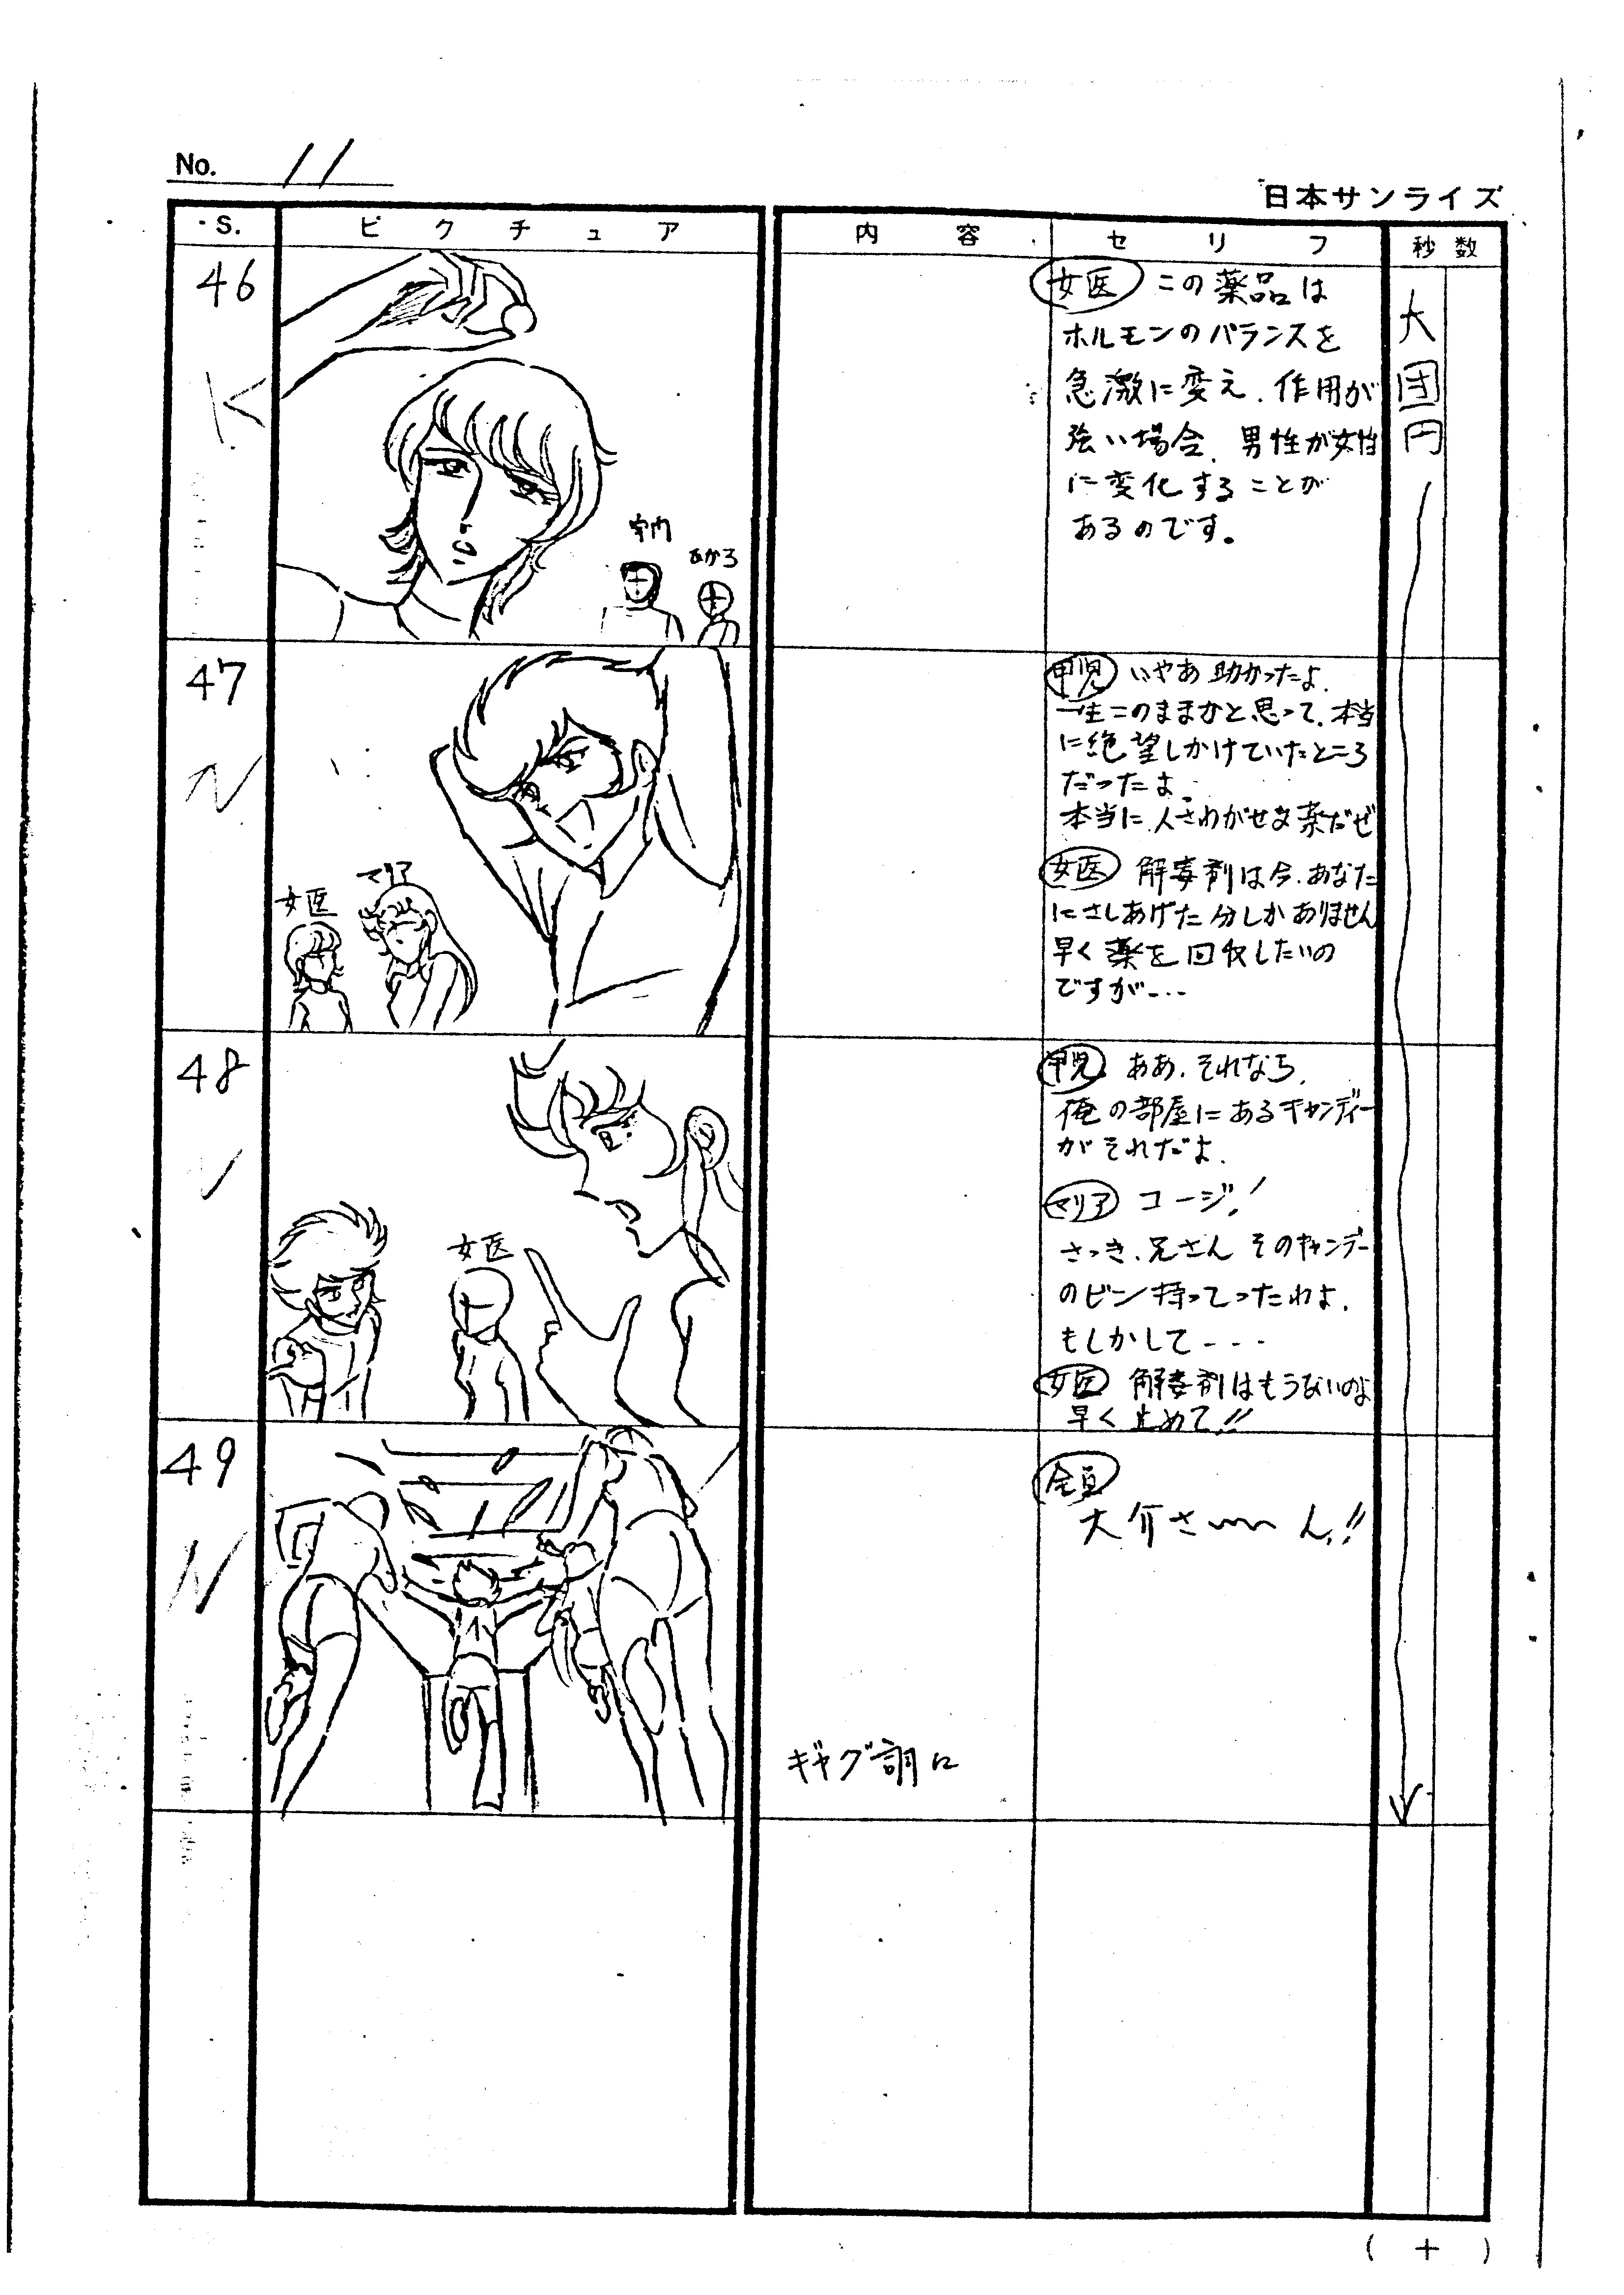 No. 11
日本サンライズ
S.
ピクチュア
内容
セリフ
秒数
46
K
宇門
ひかる
女医 この薬品は
ホルモンのバランスを
急激に変え、作用が
強い場合、男性が女性
に変化することが
あるのです。
大団円
47
N
女医
マリア
甲児 いやあ助かったよ.
一生このままかと思って、本当
に絶望しかけていたところ
だったよ.
本当に人さわがせな薬だぜ
女医 解毒剤は今、あなた
にさしあげた分しかありません
早く薬を回収したいの
ですが---
48
N
女医
甲児 ああ、それなら、
俺の部屋にあるキャンディー
がそれだよ.
マリア コージ!
さっき、兄さんそのキャンデー
のビン持ってったわよ.
もしかして---
女医 解毒剤はもうないのよ
早く止めて!!
49
N
全員
大介さ〜〜ん!!
ギャグ調に
( + )